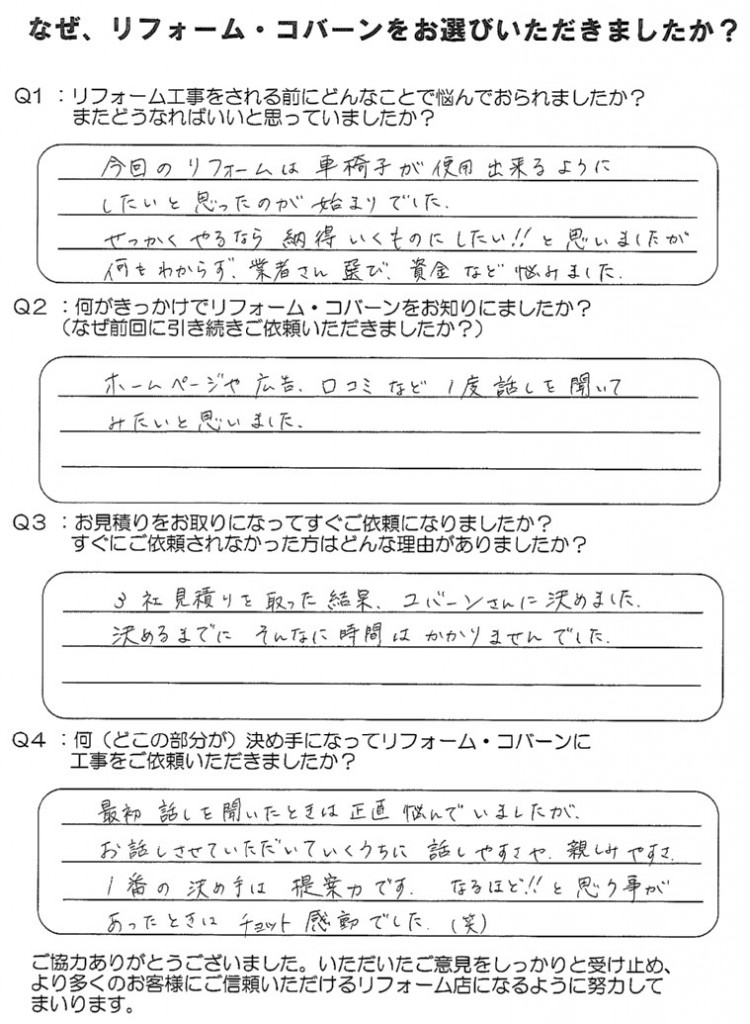 なぜ、リフォーム・コバーンをお選びいただきましたか？
Q1 ：リフォーム工事をされる前にどんなことで悩んでおられましたか？
またどうなればいいと思っていましたか？
今回のリフォームは車椅子が使用出来るように
したいと思ったのが始まりでした.
せっかくやるなら納得いくものにしたい!!と思いましたが
何もわからず、業者さん選び、資金など悩みました.
Q2 ：何がきっかけでリフォーム・コバーンをお知りにましたか？
（なぜ前回に引き続きご依頼いただきましたか？）
ホームページや広告、口コミなど1度話しを聞いて
みたいと思いました.
Q3 ：お見積りをお取りになってすぐご依頼になりましたか？
すぐにご依頼されなかった方はどんな理由がありましたか？
3社見積りを取った結果、コバーンさんに決めました.
決めるまでにそんなに時間はかかりませんでした.
Q4 ：何（どこの部分が）決め手になってリフォーム・コバーンに
工事をご依頼いただきましたか？
最初話しを聞いたときは正直悩んでいましたが、
お話しさせていただいていくうちに話しやすさや、親しみやすさ、
1番の決め手は提案力です. なるほど!!と思う事が
あったときはチョット感動でした.(笑)
ご協力ありがとうございました。いただいたご意見をしっかりと受け止め、
より多くのお客様にご信頼いただけるリフォーム店になるように努力して
まいります。